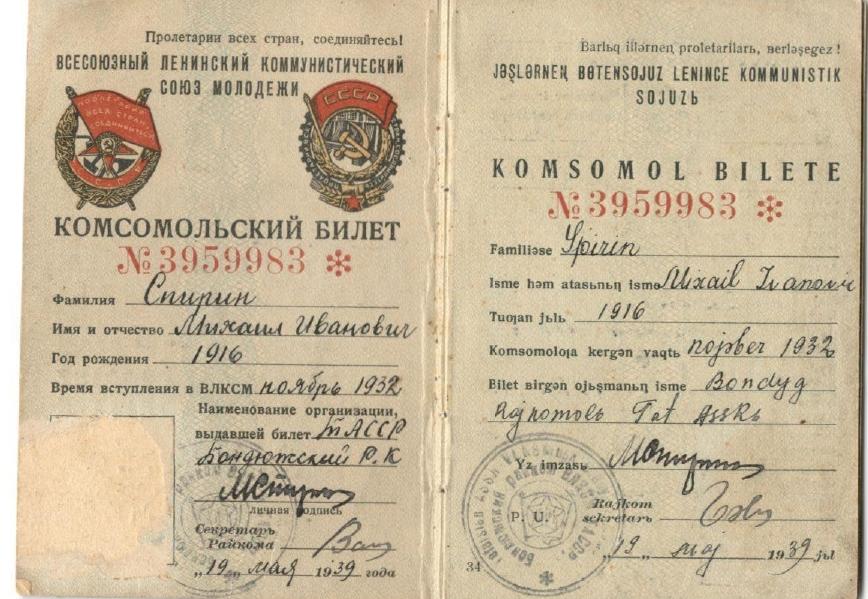 Пролетарии всех стран, соединяйтесь!
ВСЕСОЮЗНЫЙ ЛЕНИНСКИЙ КОММУНИСТИЧЕСКИЙ
СОЮЗ МОЛОДЕЖИ
СССР
КОМСОМОЛЬСКИЙ БИЛЕТ
№ 3959983 *
Фамилия Спирин
Имя и отчество Михаил Иванович
Год рождения 1916
Время вступления в ВЛКСМ ноябрь 1932
Наименование организации,
выдавшей билет ТАССР
Бондюжский Р.К
личная подпись
Секретарь
Райкома
„19„ мая 1939 года
Barlьq illərneꞑ proletarilarь, berləşegez!
JƏŞLƏRNEꞐ BƟTENSOJUZ LENINCE KOMMUNISTIK
SOJUZЬ
KOMSOMOL BILETE
№ 3959983 *
Familiəse Spirin
Isme həm atasьnьꞑ isme Mixail Ivanovic
Tuƣan jьlь 1916
Komsomolƣa kergən vaqtь nojəber 1932
Bilet birgən ojьşmanьꞑ isme Bondyg
Rajkomolь Tat ASSRь
Yz imzasь
P. U.
Rajkom
sekretarь
„19„ maj 1939 jьl
34